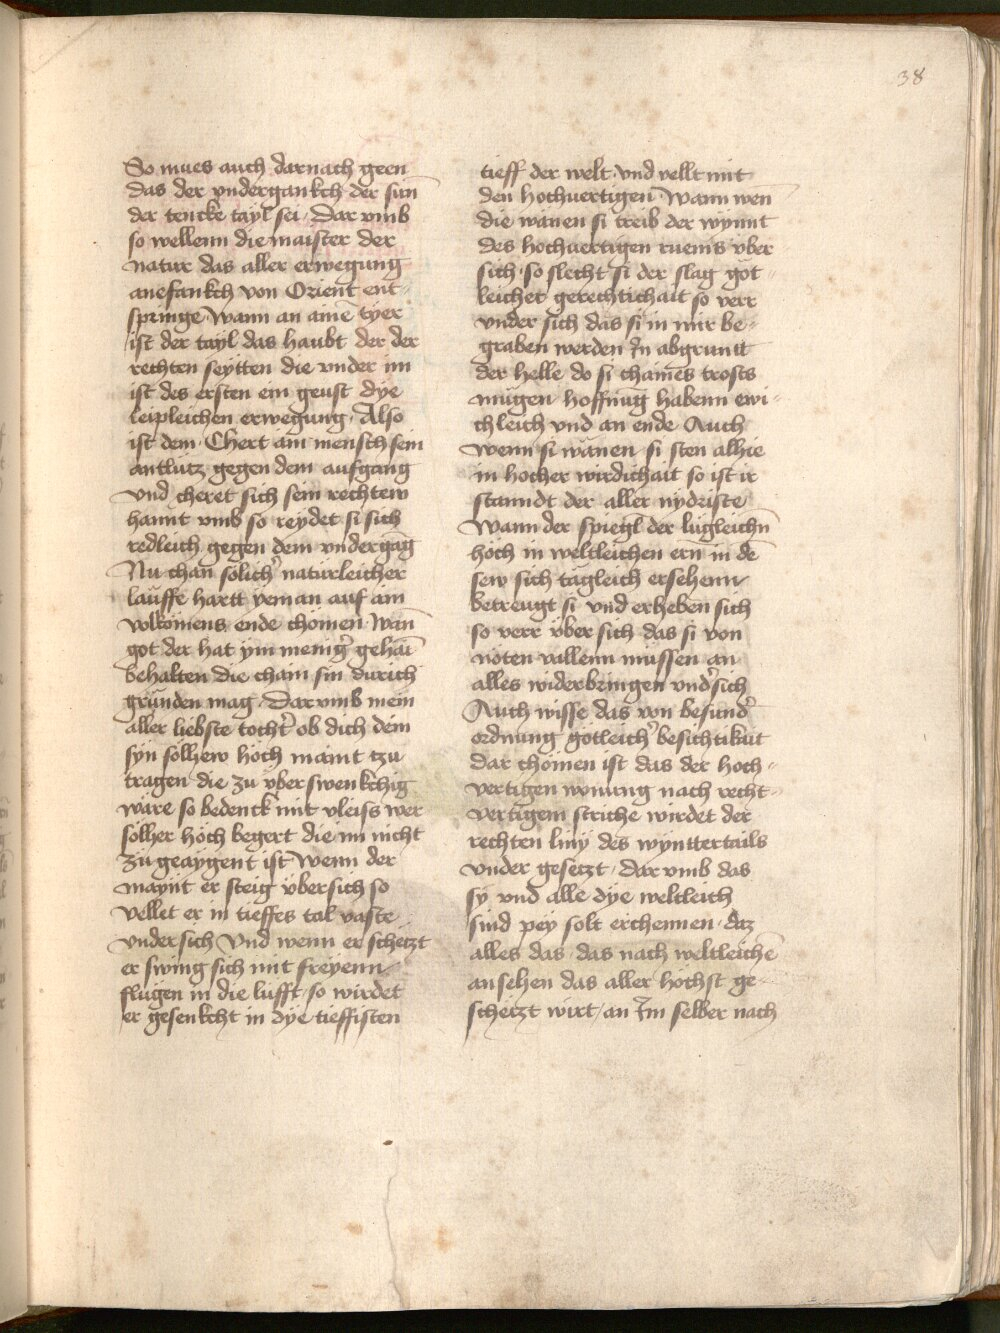 38
So mues auch darnach geen
das der vndergankch der sun̄
der tencke tayl sei · Dar vmb
so wellenn die maister der
natur das aller erwegung
anefankch von Orient ent-
springe · Wann an aine tyer
ist der tayl das haubt der der
rechten seytten die vnder im
ist des ersten ein geust dye
leipleichen erwegung · Also
ist dem · Chert am mensch sein
antlütz gegen dem aufgang
vnd cheret sich sein rechtew
hannt vmb so reydet si sich
redleich gegen dem vndergāg
Nu chan solich' naturleicher
lauffe hartt yeman auf ain
volkōmens ende chōmen · Wān
got der hat ym menig' gehaī
behalten die chain sin durich
gründen mag · Darvmb mein
aller liebste tocht' ob dich dein
syn solhew hoch maint tzu
tragen die zu vberswenkchig
wäre so bedenck mit vleiss wer
solher höch begert die im nicht
zu geaygent ist Wenn der
maynt er steig vbersich so
vellet er in tieffes tal vaste
vndersich Vnd wenn er schetzt
er swing sich mit freyenn
flugen in die lufft · so wirdet
er gesenkcht in dye tieffisten
tieff der welt · vnd vellt mit
den hochuertigen Wann wen
die wanen si treib der wynnt
des hochuertigen ruems vber
sich · so slecht si der slag göt-
leicher gerechtichait so verr
vnder sich das si in mir be-
graben werden In abgruntt
der helle do si chaines trosts
mügen hoffnug habenn ewi-
chleich vnd an ende Auch
wenn si wänen si sten alhie
in hocher wirdichait so ist ir
stanndt der aller nydriste
Wann der spiegl der lugleichn̄
höch in weltleichen ern in dē
sew sich tägleich ersehenn
betreugt si vnd erheben sich
so verr vber sich das si von
nöten vallenn müssen an
alles widerbringen vnd'sich
Auch wisse das von besund'
ordnung gotleich' besichtikait
dar chömen ist das der hoch-
vertigen wonung nach recht-
vertigem striche wirdet der
rechten liny des wynttertails
vnder gesetzt · Dar vmb das
sy vnd alle dye weltleich
sind pey solt erchennen · daz
alles das · das nach weltleichē
ansehen das aller höchst ge-
schetzt wirt · an Im selber nach